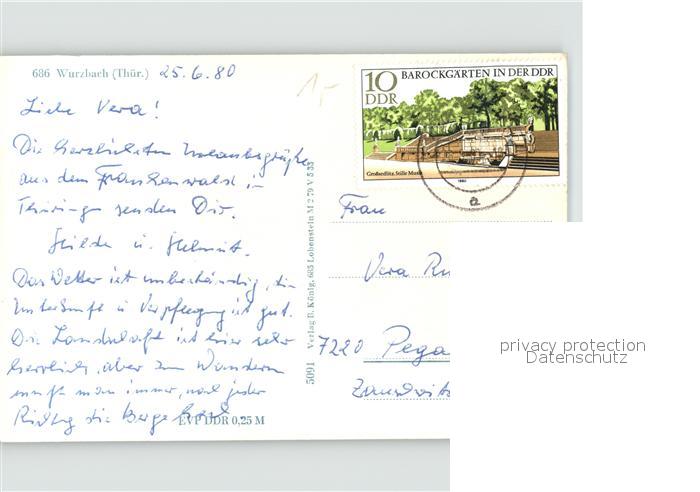 686 Wurzbach (Thür.) 25.6.80
1,-
Liebe Vera!
Die herzlichsten Urlaubsgrüße
aus dem Frankenwald in
Thüring. senden Dir.
Hilde u. Helmut.
Das Wetter ist unbeständig, die
Unterkunft u Verpflegung ist gut.
Die Landschaft ist hier sehr
herrlich, aber zum Wandern
muß man immer, nach jeder
Richtg die Berge hoch
EVP DDR 0,25 M
5091 Verlag B. König, 685 Lobenstein M 2 79 V 5 35
10
DDR
BAROCKGÄRTEN IN DER DDR
Großsedlitz, Stille Musik
1980
a
Frau
Vera
7220 Pega
privacy protection
Datenschutz